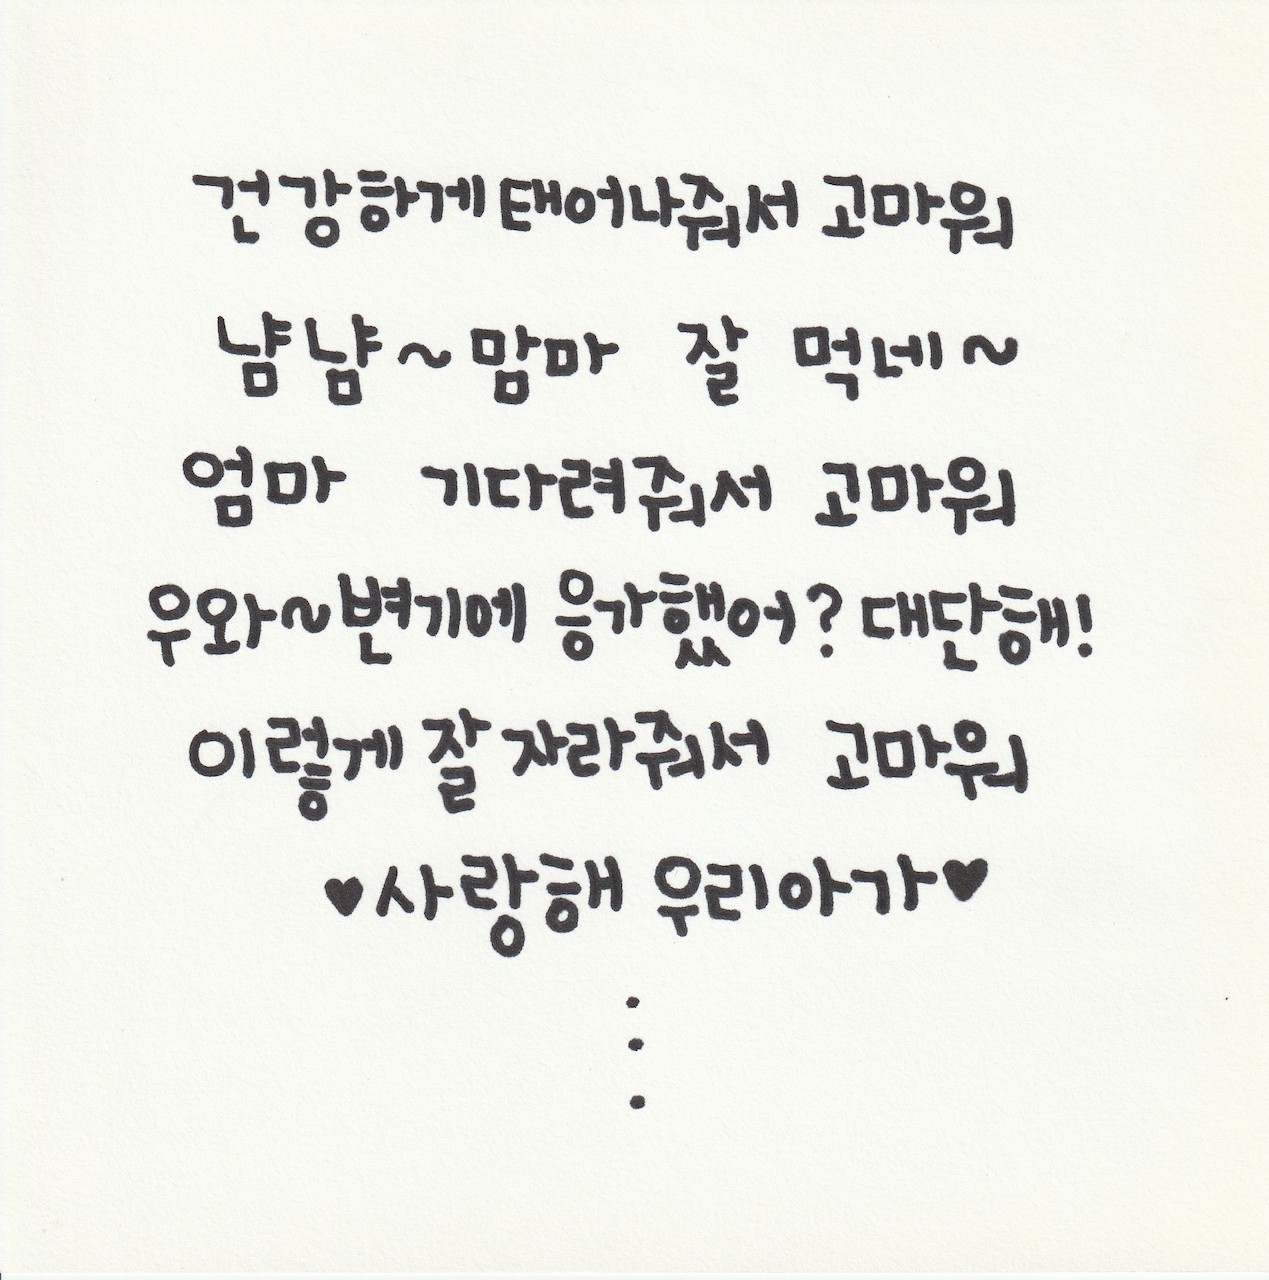 건강하게 태어나줘서 고마워
냠냠~맘마 잘 먹네~
엄마 기다려줘서 고마워
우와~변기에 응가했어? 대단해!
이렇게 잘 자라줘서 고마워
♥사랑해 우리아가♥